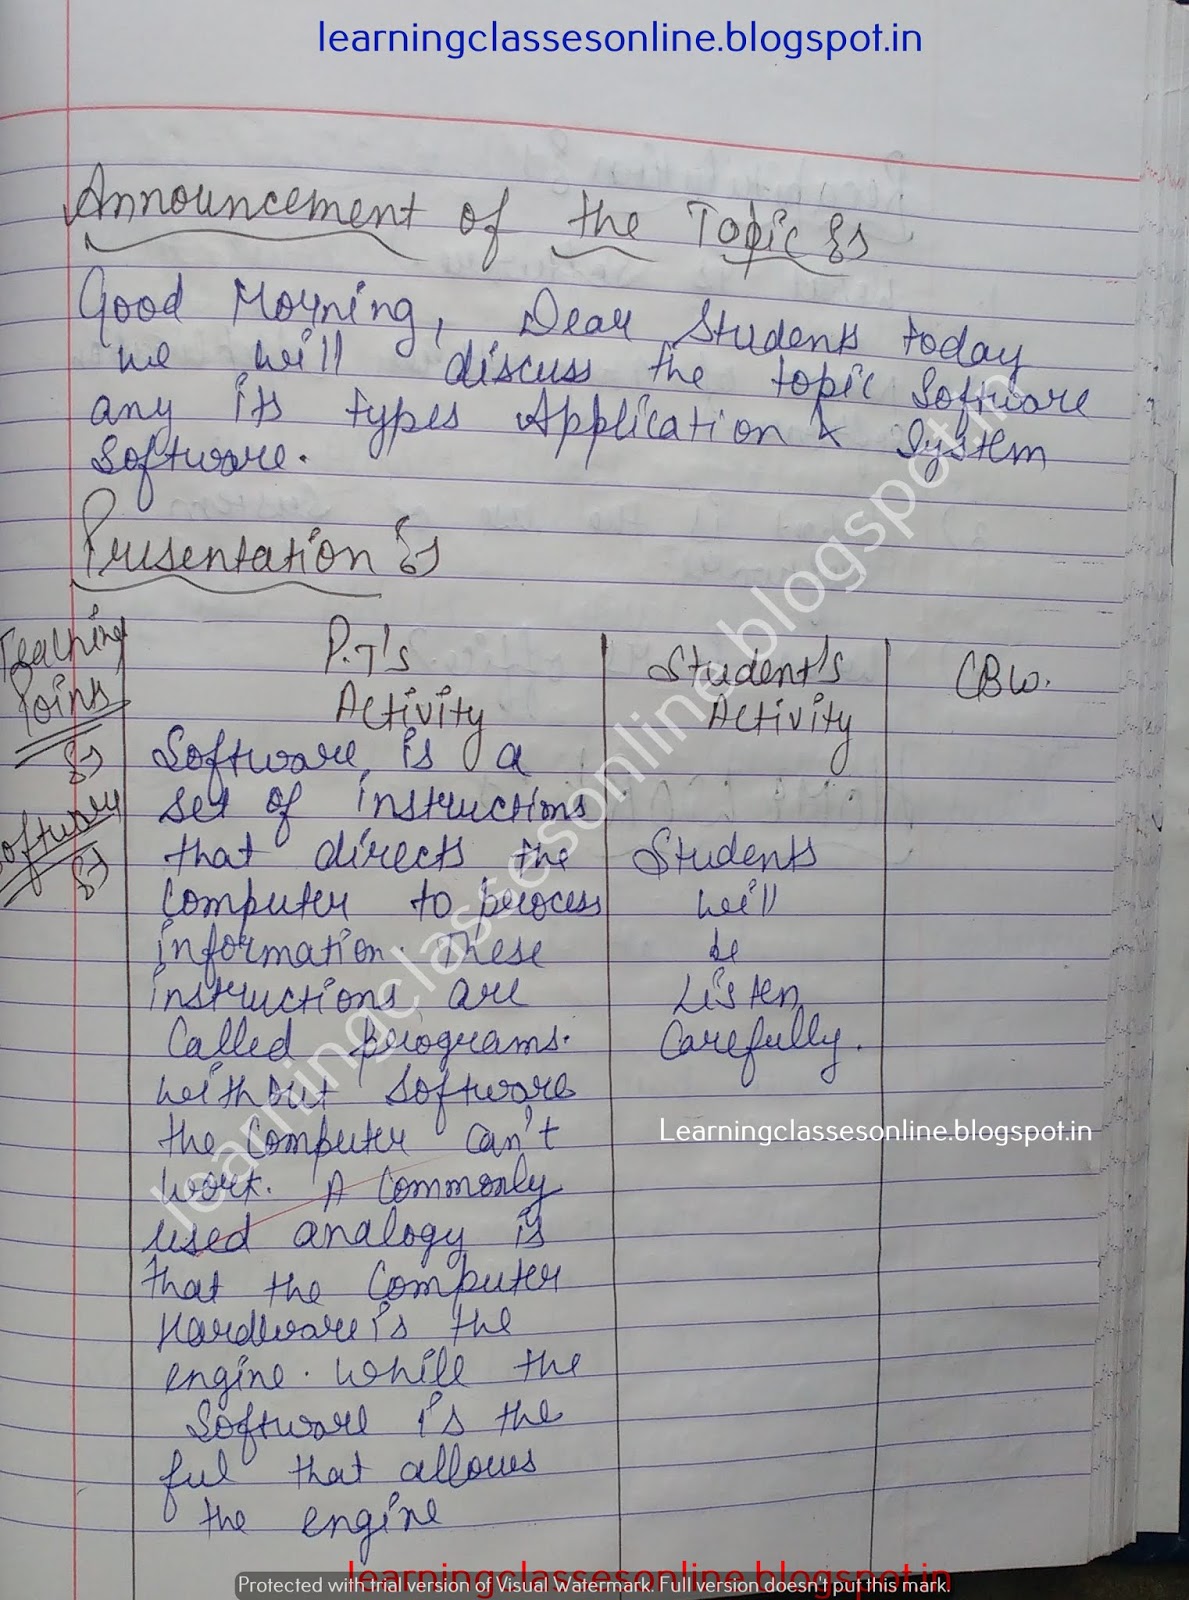 learningclassesonline.blogspot.in
Announcement of the Topic :-
Good Morning, Dear Students today
we will discuss the topic Software
any its types Application & System
Software.
Presentation :-
Teaching
Points
:-
P.T's
Activity
Student's
Activity
CBW.
Software
:-
Software is a
set of instructions
that directs the
Computer to process
information. These
instructions are
Called programs.
without Software
the Computer can't
work. A Commonly
used analogy is
that the Computer
Hardware is the
engine. while the
Software is the
ful that allows
the engine
Students
will
be
Listen
Carefully.
Learningclassesonline.blogspot.in
learningclassesonline.blogspot.in
learningclassesonline.blogspot.in
Protected with trial version of Visual Watermark. Full version doesn't put this mark.